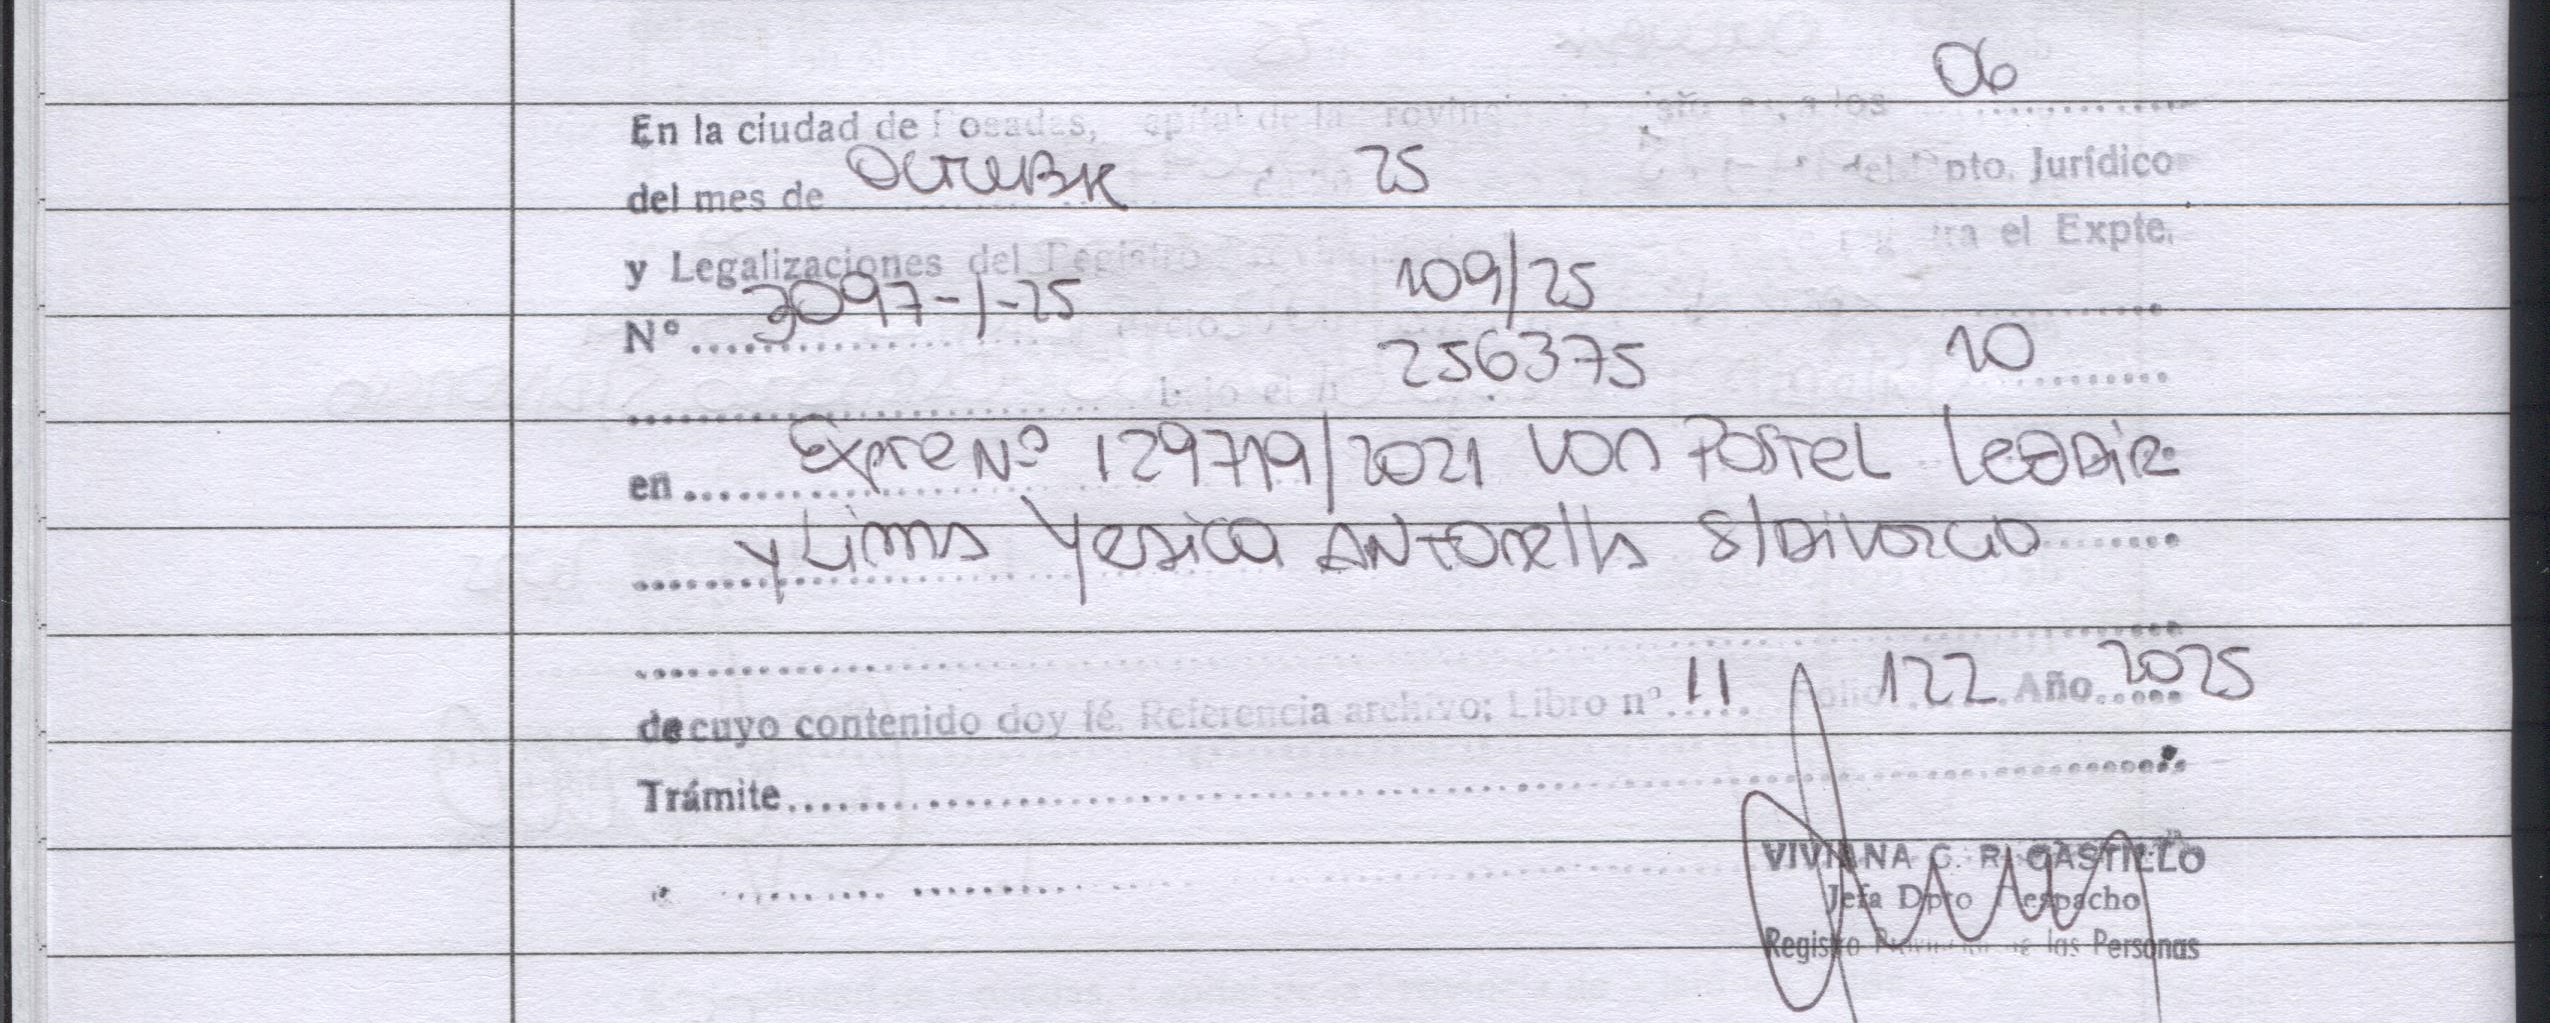 06
En la ciudad de Posadas, capital de la Provincia a los
del mes de OCTUBRE 25 del Dpto. Jurídico
y Legalizaciones del Registro el Expte.
Nº 3097-J-25 109/25
bajo el n 256375 10
en Expte Nº 129719/2021 Von Postel
y Lima Yesica Antonella S/Divorcio
de cuyo contenido doy fé. Referencia archivo: Libro nº 11 Folio 122 Año 2025
Trámite
VIVIANA C. R. CASTILLO
Jefa Dpto Despacho
Registro Provincial de las Personas